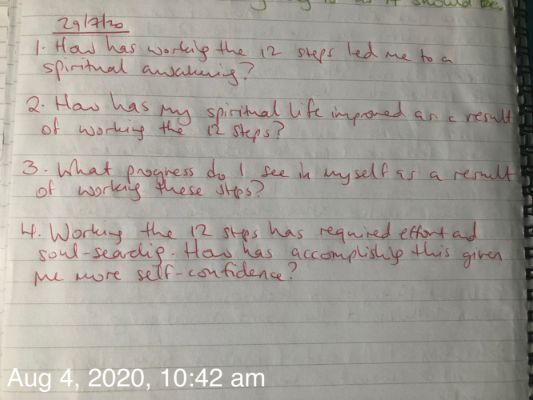 it should be.
29/7/20
1. How has working the 12 steps led me to a
spiritual awakening?
2. How has my spiritual life improved as a result
of working the 12 steps?
3. What progress do I see in myself as a result
of working these steps?
4. Working the 12 steps has required effort and
soul-searching. How has accomplishing this given
me more self-confidence?
Aug 4, 2020, 10:42 am